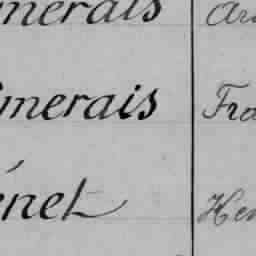 merais
merais Fra
énet Hen